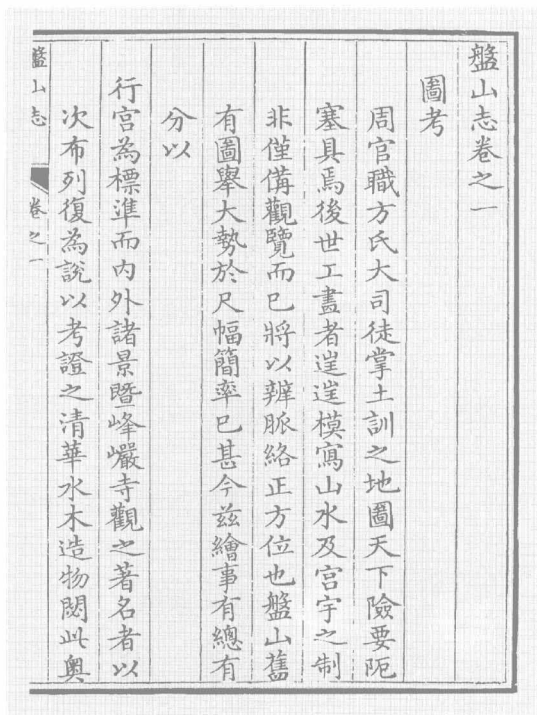 盤山志卷之一
圖考
周官職方氏大司徒掌土訓之地圖天下險要阨
塞具焉後世工畫者遑遑模寫山水及宮宇之制
非僅備觀覽而已將以辨脈絡正方位也盤山舊
有圖舉大勢於尺幅簡率已甚今茲繪事有總有
分以
行宮為標準而內外諸景暨峰巖寺觀之著名者以
次布列復為說以考證之清華水木造物閟此奧
盤山志
卷之一